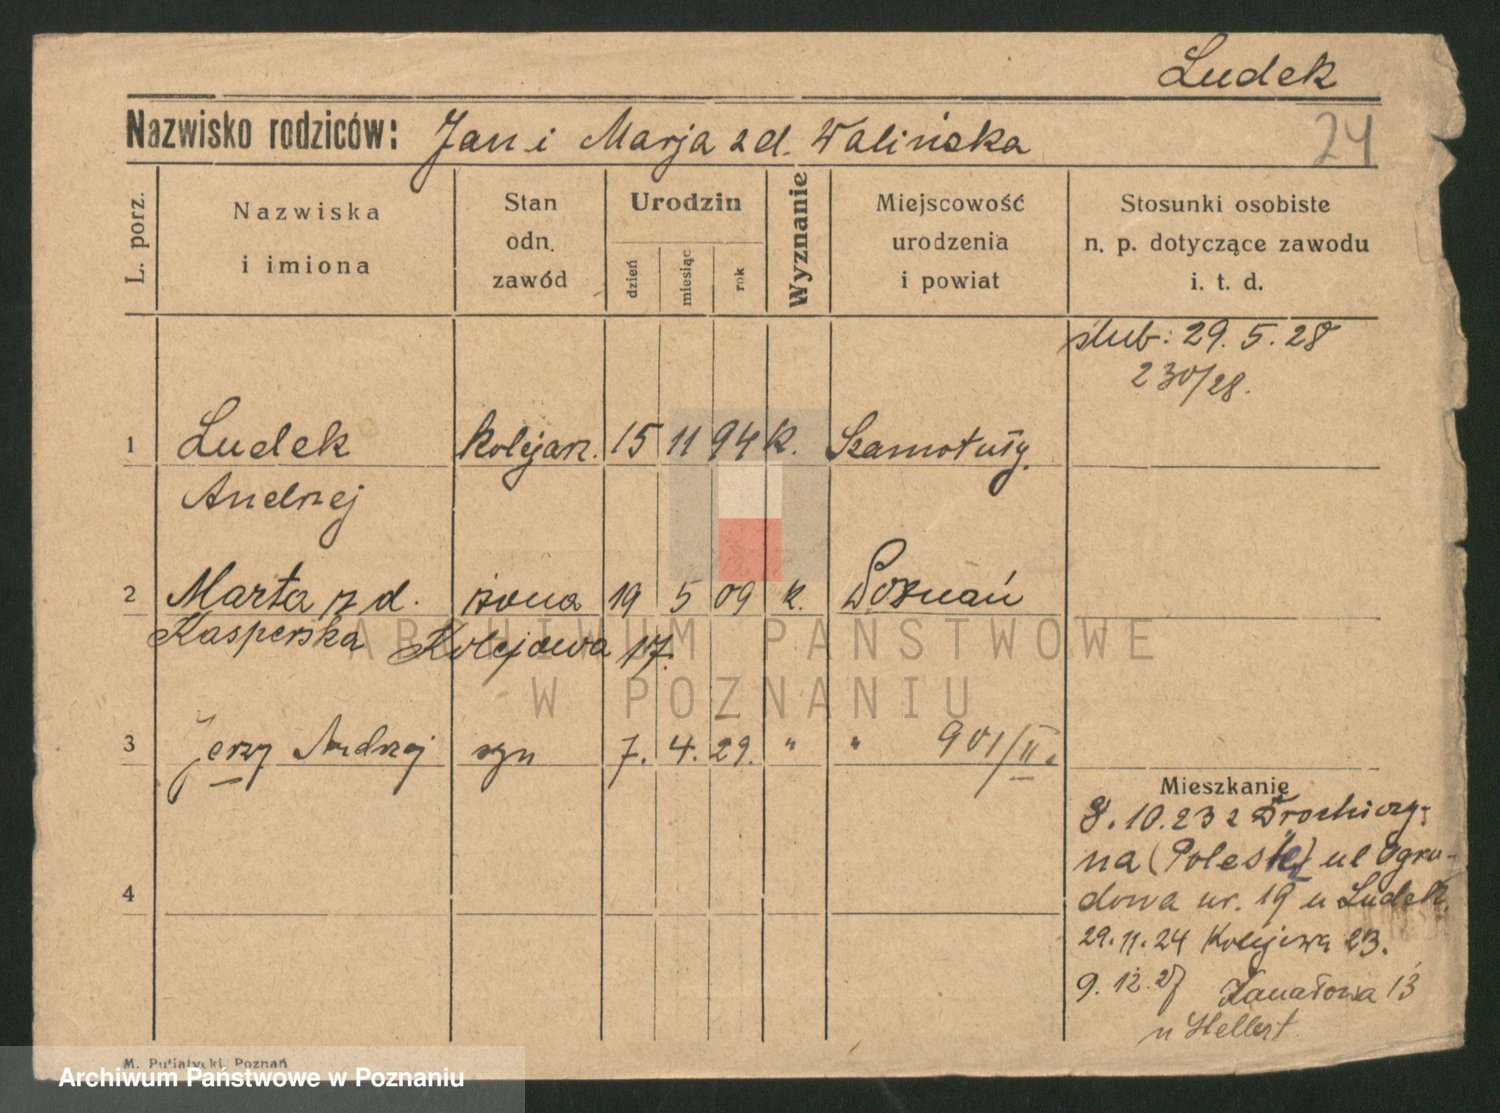 Ludek
Nazwisko rodziców: Jan i Marja z d. Walińska
24
L. porz.
Nazwiska
i imiona
Stan
odn.
zawód
Urodzin
dzień
miesiąc
rok
Wyznanie
Miejscowość
urodzenia
i powiat
Stosunki osobiste
n. p. dotyczące zawodu
i. t. d.
ślub: 29. 5. 28
230/28.
1 Ludek kolejarz. 15 11 94 k. Szamotuły.
Andrzej
2 Marta z d. żona 19 5 09 k. Poznań
Kasperska Kolejowa 17.
ARCHIWUM PAŃSTWOWE
W POZNANIU
3 Jerzy Andrzej syn 7. 4. 29. " " 901/II.
Mieszkanie
8.10.23 z Drohiczy-
na (Polesie) ul Ogro-
4
dowa nr. 19 u Ludek.
29.11.24 Kolejowa 23.
9.12.27 Kanałowa 13
u Hellert
M. Putiatycki, Poznań
Archiwum Państwowe w Poznaniu